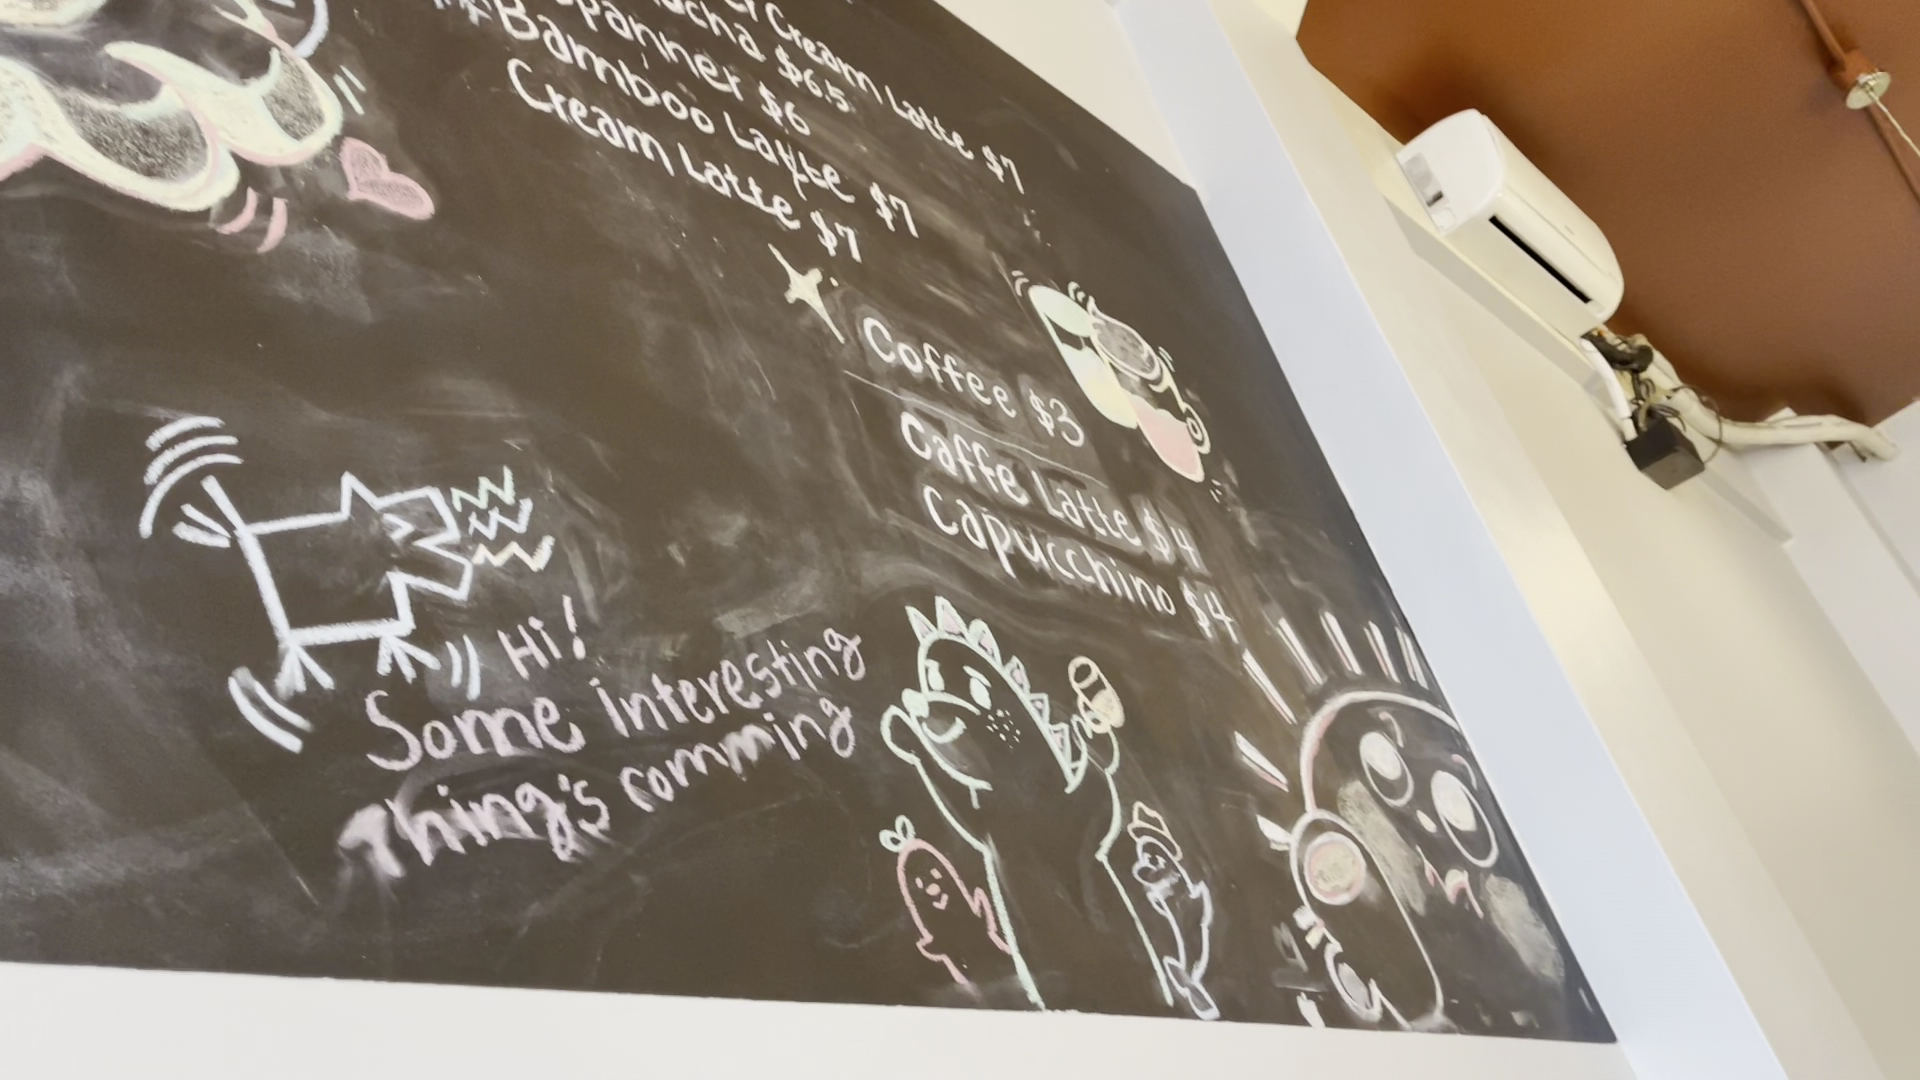 Cream Latte $7
$6.5
Spanner $6
Bamboo Latte $7
Cream Latte $7
Coffee $3
Caffe Latte $4
Capucchino $4
Hi!
Some interesting
Thing's comming